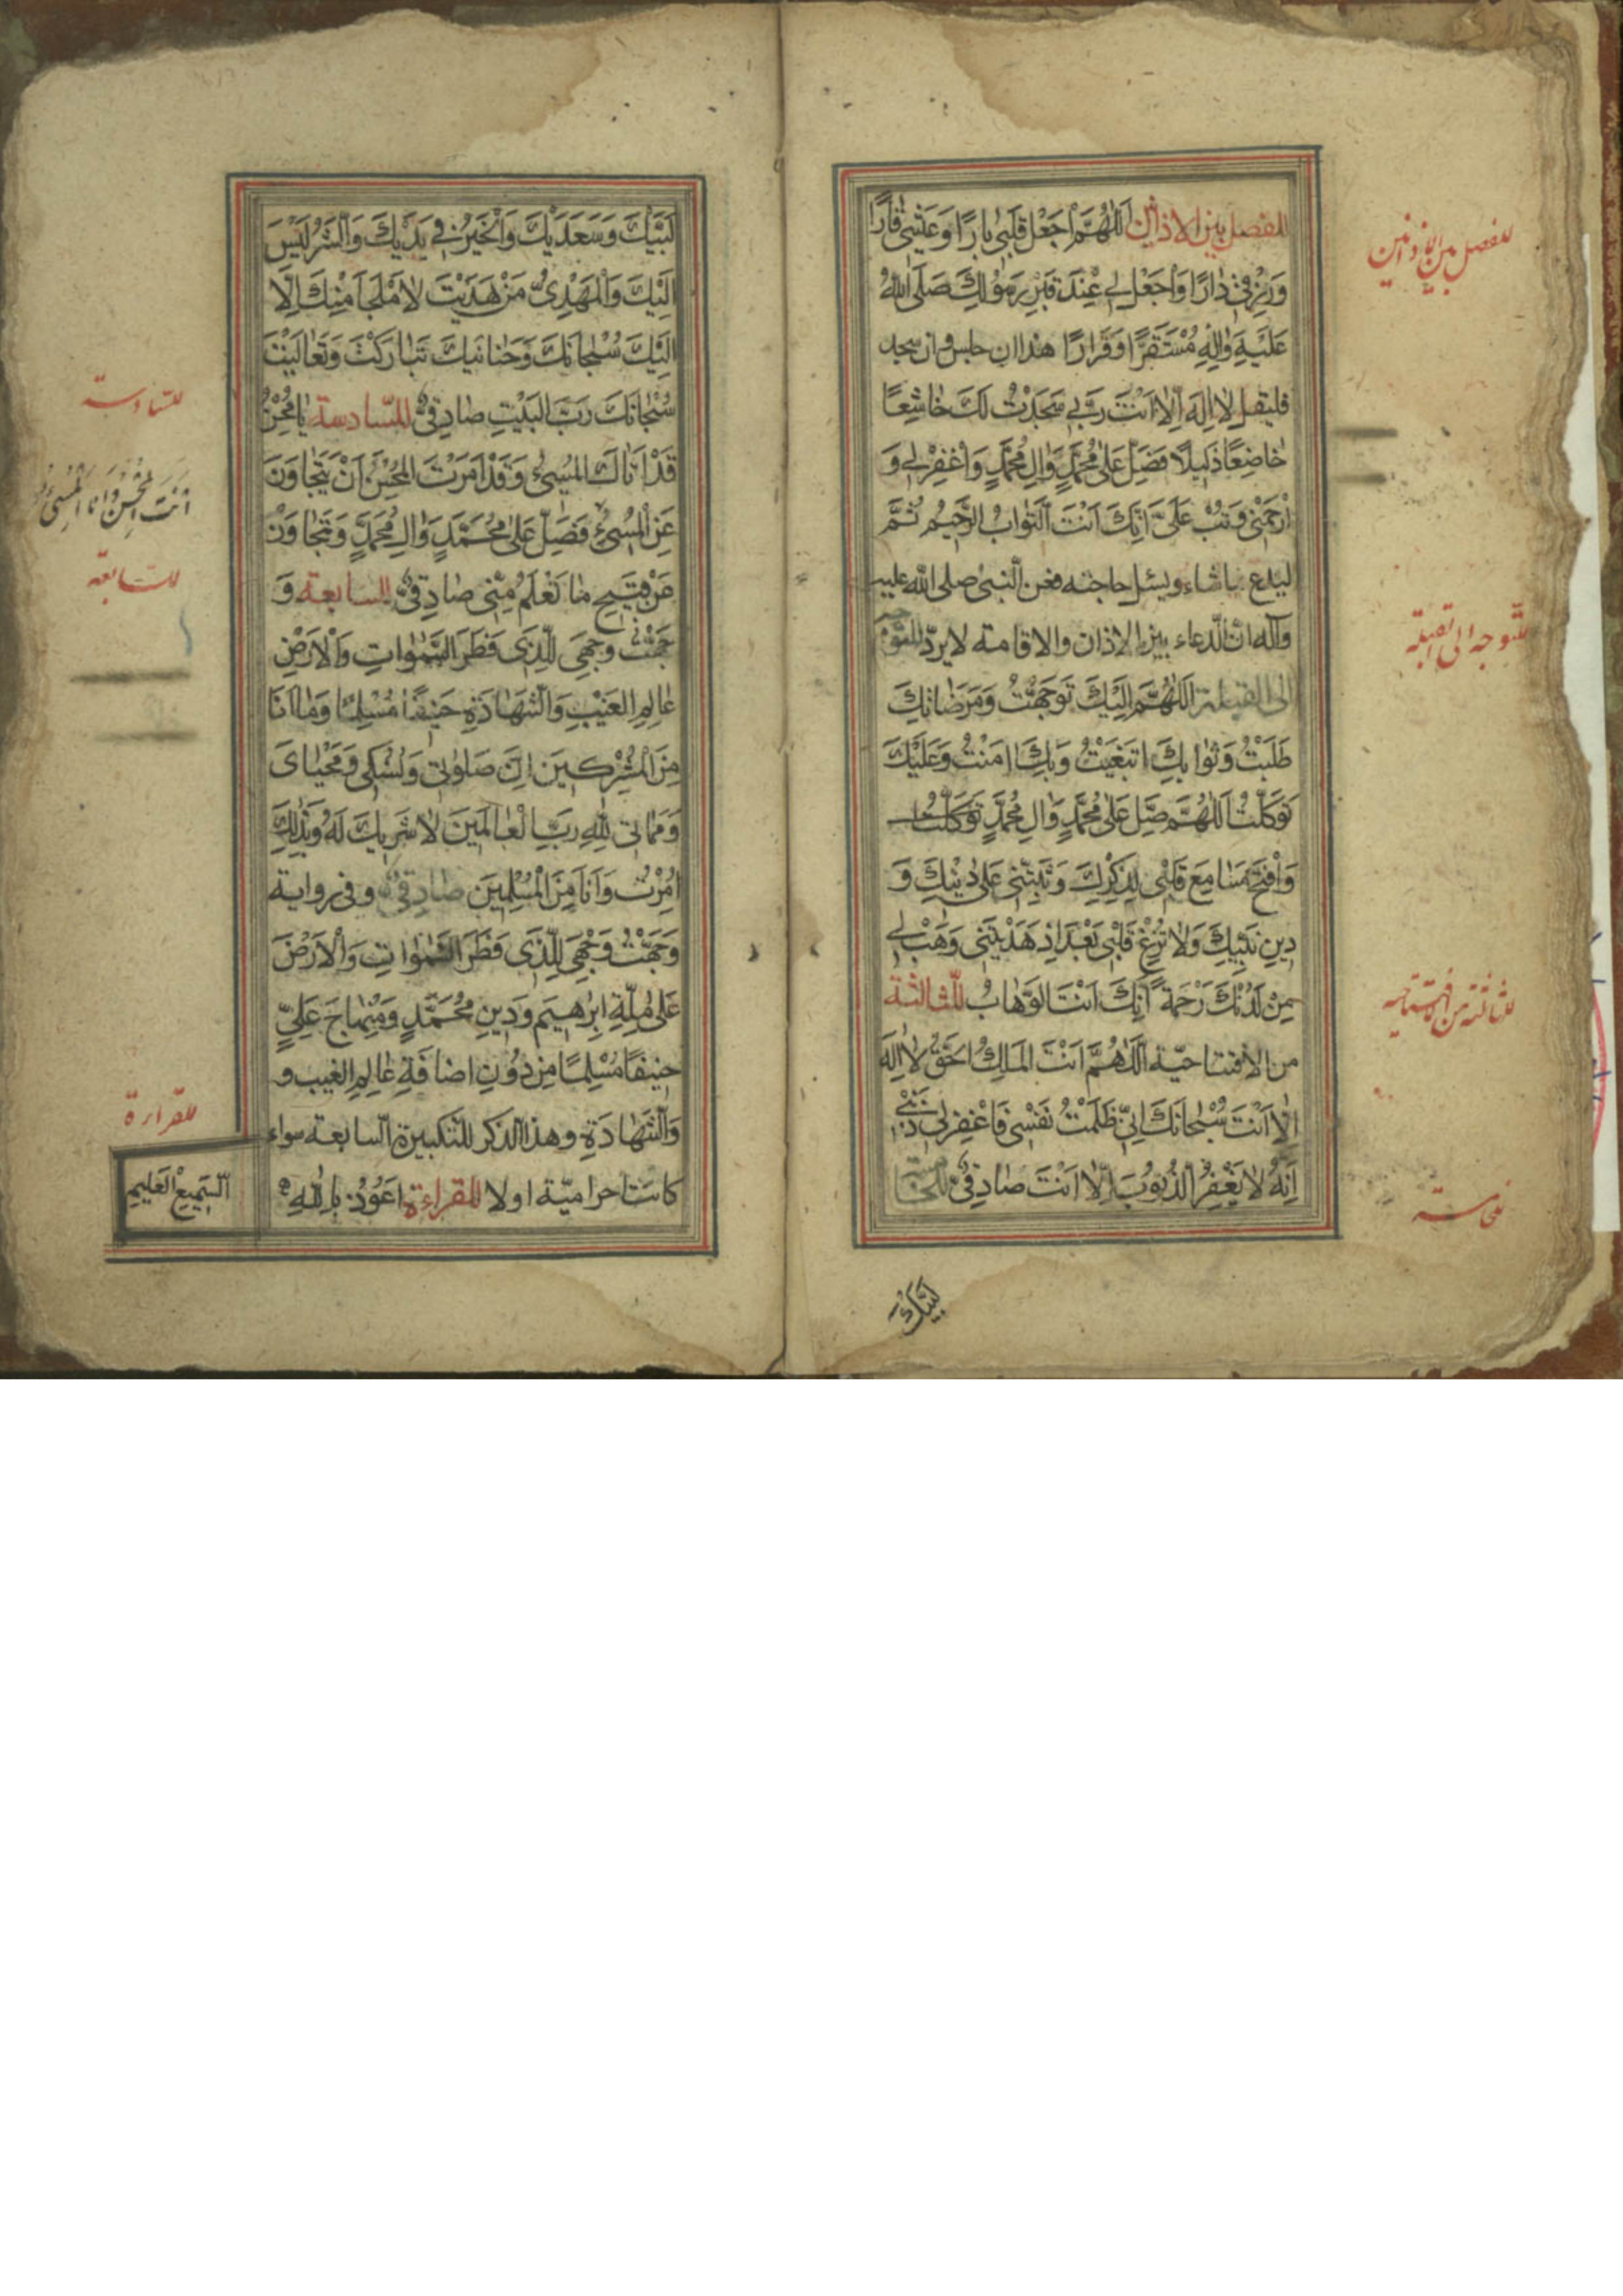 للفصل بين الاذانين اَللّٰهُمَّ اجْعَلْ قَلْبى بارًا وَعَيْشى قٰارًّا
وَرِزْقى دٰارًا وَاْجَعْل لى عِنْدَ قَبْرِ رَسُولِكَ صَلَّى اللهُ
عَلَيْهِ وَاٰلِهِ مُسْتَقَرًّا وَقَرٰارًا هذا ان جلس وان سجد
فليقل لاٰ اِلهَ اِلّاٰ اَنْتَ رَبّى سَجَدْتُ لَكَ خٰاشِعًا
خٰاضِعًا ذَليلًا فَصَلِّ عَلىٰ مُحَمَّدٍ وَاٰلِ مُحَمَّدٍ وَاغْفِرْلى وَ
ارْحَمْنى وَتُبْ عَلَىَّ اِنَّكَ اَنْتَ التَّوابُ الرَّحيمُ ثُمَّ
ليدع بماشاء ويسئل حاجته فعن النبى صلى الله عليه
وآله انّ الدّعاء بين الاذان والاقامة لايردّ للتوجه
الى القبلة اَللّٰهُمَّ اِلَيْكَ تَوَجَّهْتُ وَمَرَضٰاتِكَ
طَلَبْتُ وَثَوٰابَكَ ابْتَغَيْتُ وَبِكَ اٰمَنْتُ وَعَلَيْكَ
تَوَكَّلْتُ اَللّٰهُمَّ صَلِّ عَلىٰ مُحَمَّدٍ وَاٰلِ مُحَمَّدٍ تَوَكَّلْتُ
وَافْتَحْ مَسٰامِعَ قَلْبى لِذِكْرِكَ وَثَبِّتْنى عَلىٰ دٖينِكَ وَ
دِينِ نَبِيِّكَ وَلاٰ تُزِغْ قَلْبى بَعْدَ اِذْ هَدَيْتَنى وَهَبْ لى
مِنْ لَدُنْكَ رَحْمَةً اِنَّكَ اَنْتَ الوَهّٰابُ للثّالثة
من الافتتاحيّة اَللّٰهُمَّ اَنْتَ المَلِكُ الحَقُّ لاٰ اِلهَ
اِلّاٰ اَنْتَ سُبْحٰانَكَ اِنّى ظَلَمْتُ نَفْسى فَاغْفِرلى ذَنْبى
اِنَّهُ لاٰ يَغْفِرُ الذُنُوبَ اِلّاٰ اَنْتَ صٰادِقى للخامسة
لَبَّيْكَ
للفصل بين الاذانين
للتوجه الى القبلة
للثالثة من الافتتاحيه
للخامسة
لَبَّيْكَ وَسَعَدَيْكَ وَالْخَيْرُ فى يَدَيْكَ وَالشَّرُ لَيْسَ
اِلَيْكَ وَالْمَهْدِىُّ مَنْ هَدَيْتَ لاٰ مَلْجَاَ مِنْكَ اِلّٰا
اِلَيْكَ سُبْحٰانَكَ وَحَنٰانَيْكَ تَبٰارَكْتَ وَتَعٰالَيْتَ
سُبْحٰانَكَ رَبَّ البَيْتِ صٰادِقى للسّادسة يٰا مُحْسِنُ
قَدْ اَتٰاكَ المُسِىءُ وَقَدْ اَمَرْتَ المُحْسِنَ اَنْ يَتَجٰاوَزَ
عَنِ الْمُسِىءِ فَصَلِّ عَلىٰ مُحَمَّدٍ وَاٰلِ مُحَمَّدٍ وَتَجٰاوَزْ
عَنْ قَبيحِ مٰا تَعْلَمُ مِنّى صٰادِقى للسابعة وَ
جَّهْتُ وَجْهِىَ لِلَّذى فَطَرَ السَّمٰوٰاتِ وَالْاَرْضِ
عٰالِمِ الغَيْبِ وَالشَّهٰادَةِ حَنيفًا مُسْلِمًا وَمٰا اَنَا
مِنَ الْمُشْرِكينَ اِنَّ صَلوٰتى وَنُسُكى وَمَحْيٰاىَ
وَمَمٰاتى لِلّٰهِ رَبِّ الْعٰالَمينَ لاٰ شَريكَ لَهُ وَبِذٰلِكَ
اُمِرْتُ وَاَنَا مِنَ الْمُسْلِمينَ صٰادِقى وفى رواية
وَجَّهْتُ وَجْهِىَ لِلَّذى فَطَرَ السَّمٰوٰاتِ وَالْاَرْضَ
عَلىٰ مِلَّةِ اِبْرٰهيمَ وَدِينِ مُحَمَّدٍ وَمِنْهٰاجِ عَلِىٍّ
حَنيفًا مُسْلِمًا مِن دُوْنِ اضافَةِ عٰالِمِ الغيب و
وَالشَّهٰادَةِ وهذا الذكر للتكبيرة السّابعة سواء
كانت احراميّة اولا للقراءة اَعُوذُ بِاللّٰهِ
السَّميعِ العَليمِ
للسّادسة
اَنْتَ المُحْسِنُ وَاَنَا المُسِىءُ
للسّابعة
للقراءة